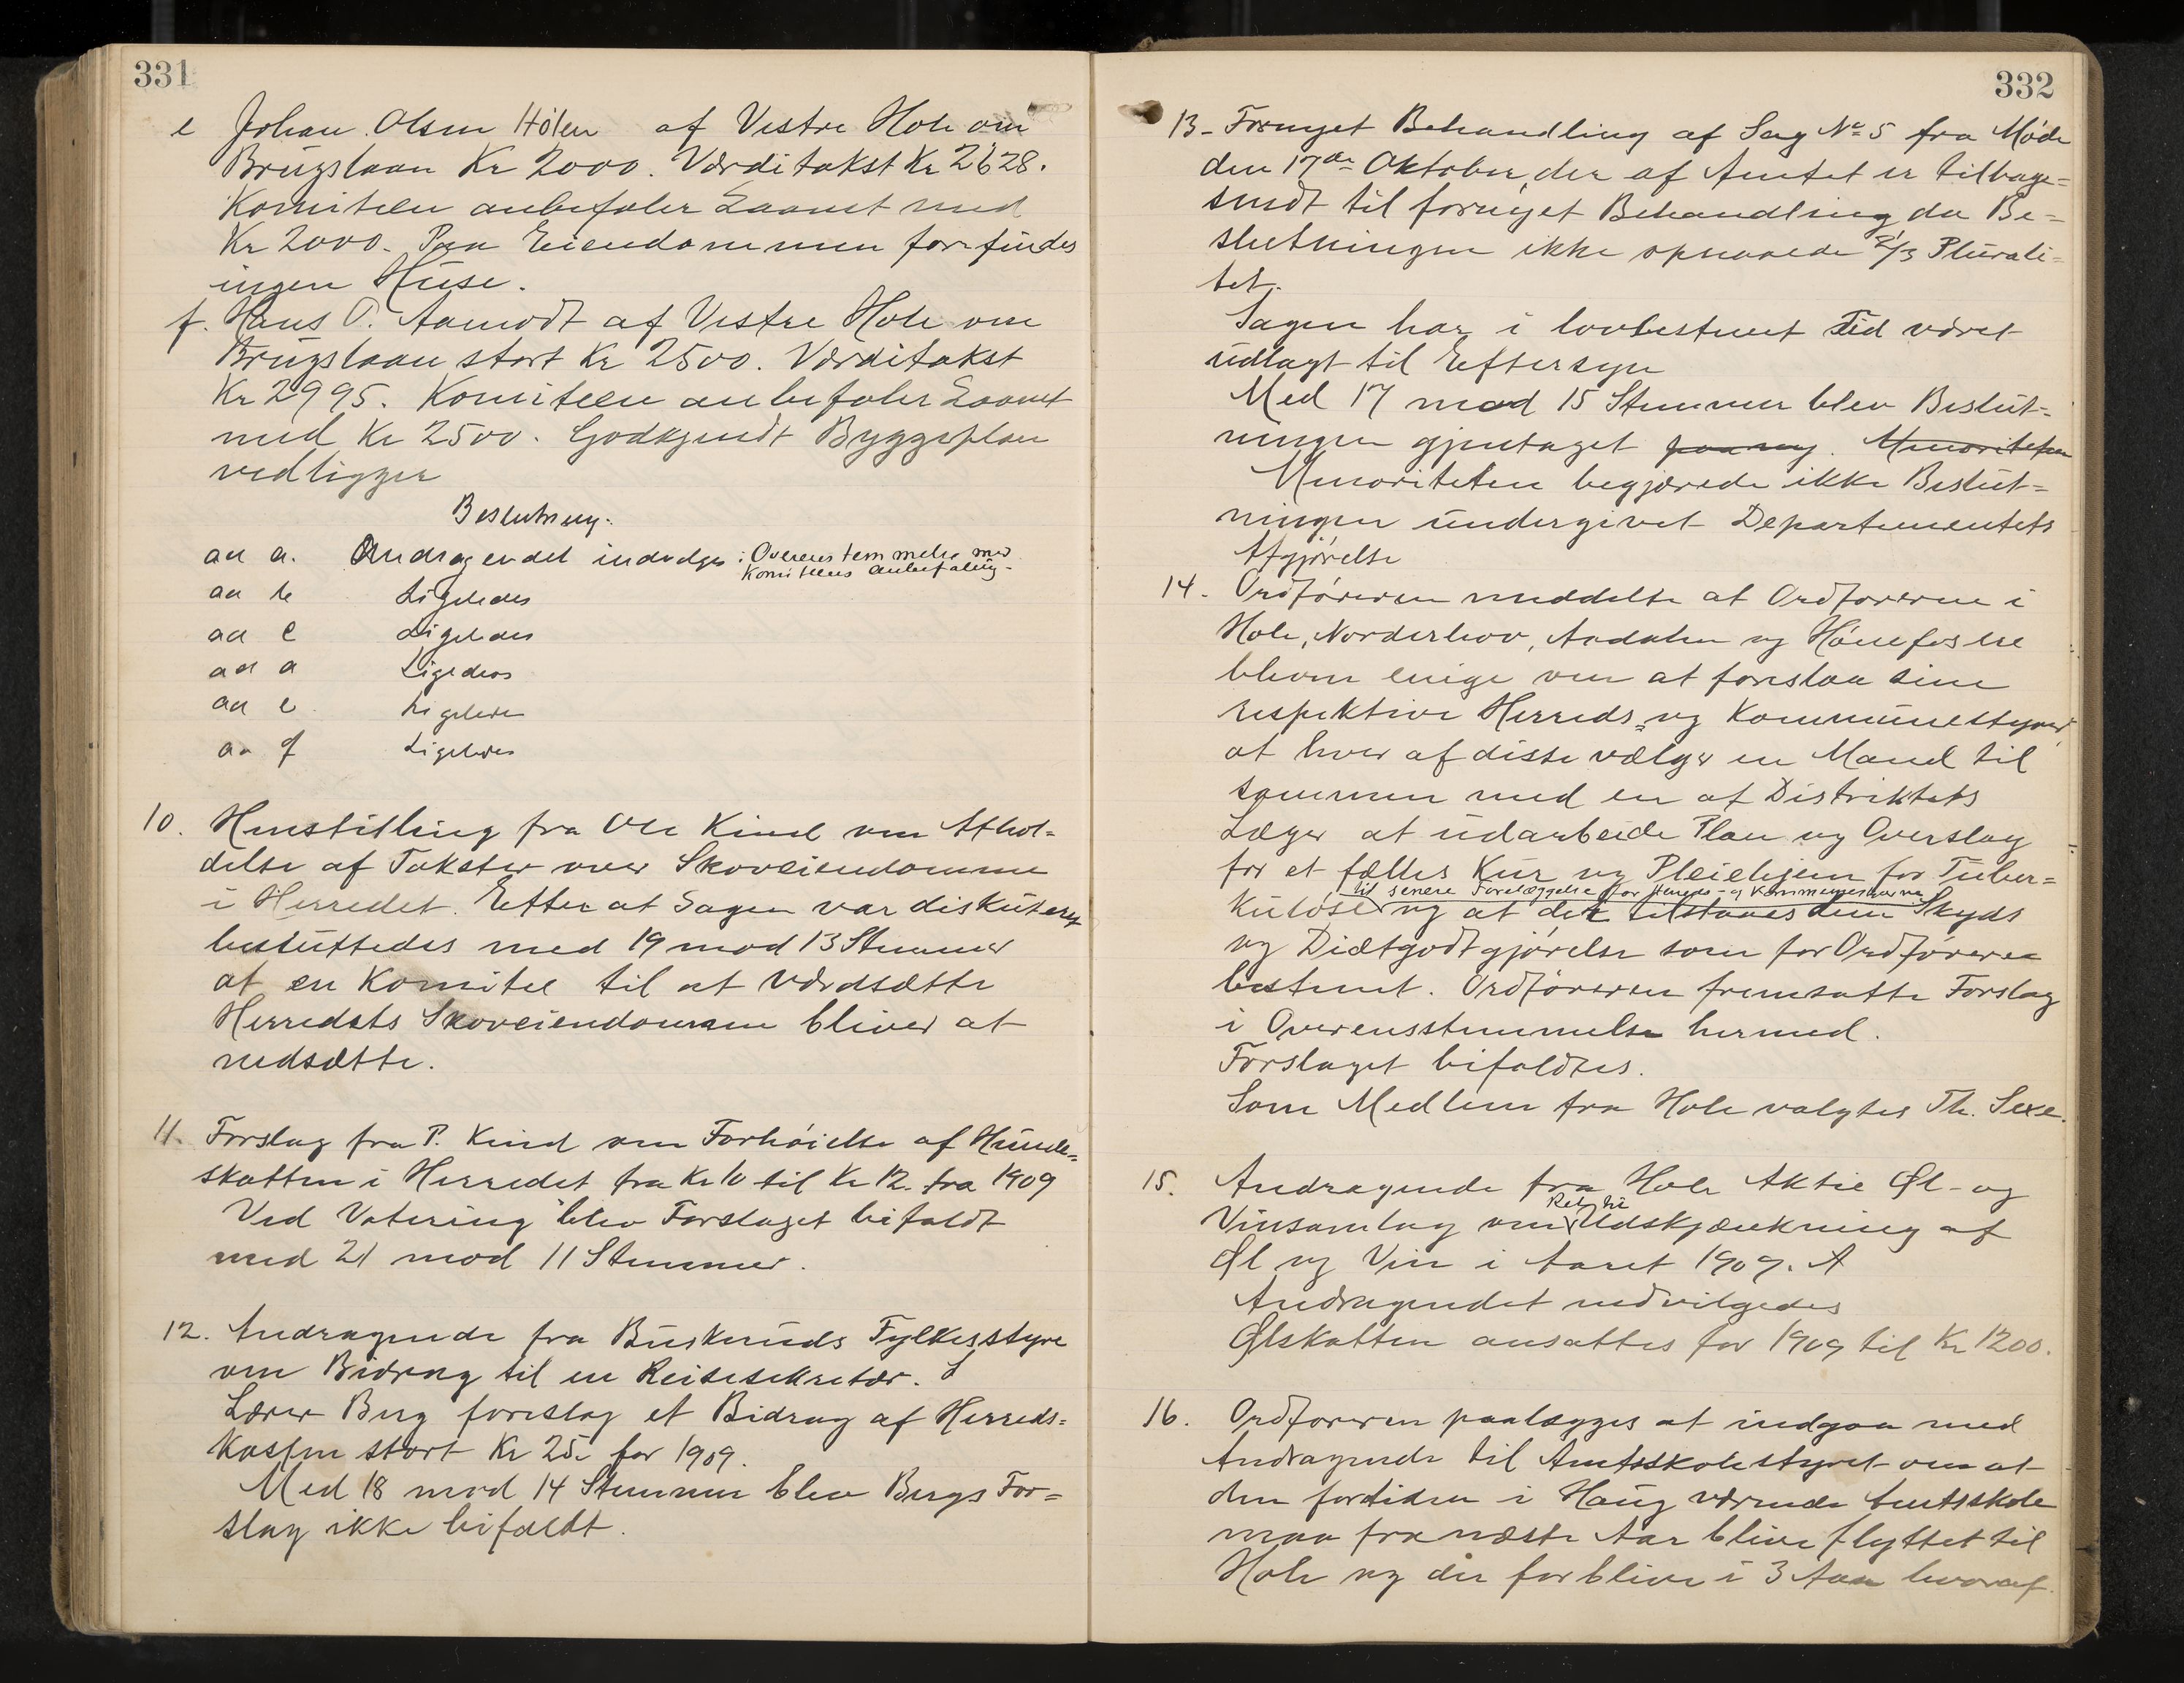 331
e Johan Olsen Hølen af Vestre Hole om
Brugslaan Kr 2000. Værditakst Kr 2628.
Komiteen anbefaler Laanet med
Kr 2000. Paa Eiendommen forefindes
ingen Huse.
f. Hans O. Aamodt af Vestre Hole om
Brugslaan stort Kr 2500. Værditakst
Kr 2995. Komiteen anbefaler Laanet
med Kr 2500. Godkjendt Byggeplan
vedligger
Beslutning.
ad a. Andragendet indvilges i Overensstemmelse med
Komiteens anbefaling.
ad b Ligeledes
ad c Ligeledes
ad d Ligeledes
ad e Ligeledes
ad f Ligeledes
10. Henstilling fra Ole Kind om Afhol=
delse af Takster over Skoveiendomme
i Herredet. Efter at Sagen var diskuteret
besluttedes med 19 mod 13 Stemmer
at en Komite til at værdsætte
Herredets Skoveiendomme bliver at
nedsætte.
11. Forslag fra P. Kind om Forhøielse af Hunde=
skatten i Herredet fra Kr 10 til Kr 12. fra 1909
Ved Votering blev Forslaget bifaldt
med 21 mod 11 Stemmer.
12. Andragende fra Buskeruds Fylkesstyre
om Bidrag til en Reisesekretær.
Lærer Berg foreslog et Bidrag af Herreds=
kassen stort Kr 25. for 1909.
Med 18 mod 14 Stemmer blev Bergs For=
slag ikke bifaldt.
332
13. Fornyet Behandling af Sag No 5 fra Møde
den 17de Oktober, der af Amtet er tilbage=
sendt til fornyet Behandling, da Be=
slutningen ikke opnaaede 2/3 Plurali=
tet.
Sagen har i lovbestemt Tid været
udlagt til Eftersyn
Med 17 mod 15 Stemmer blev Beslut=
ningen gjentaget paa ny. Minoriteten
Minoriteten begjærede ikke Beslut=
ningen undergivet Departementets
Afgjørelse
14. Ordføreren meddelte at Ordførerne i
Hole, Norderhov, Aadalen og Hønefos ere
blevne enige om at foreslaa sine
respektive Herreds= og Kommunestyrer,
at hver af disse vælger en Mand til
sammen med en af Distriktets
Læger at udarbeide Plan og Overslag
for et fælles Kur og Pleiehjem for Tuber=
til senere Forelæggelse for Herreds- og Kommunestyrerne
kuløse og at der tilstaaes dem Skyds
og Diætgodtgjørelse som for Ordførere
bestemt. Ordføreren fremsatte Forslag
i Overensstemmelse hermed.
Forslaget bifaldtes.
Som Medlem fra Hole valgtes Th. Sexe.
15. Andragende fra Hole Aktie Øl- og
Vinsamlag om Ret til Udskjænkning af
Øl og Vin i Aaret 1909. A
Andragendet indvilgedes
Ølskatten ansattes for 1909 til Kr 1200.
16. Ordføreren paalægges at indgaa med
Andragende til Amtsskolestyret om at
den fortiden i Haug værende Amtsskole
maa fra næste Aar blive flyttet til
Hole og der forblive i 3 Aar hvoraf